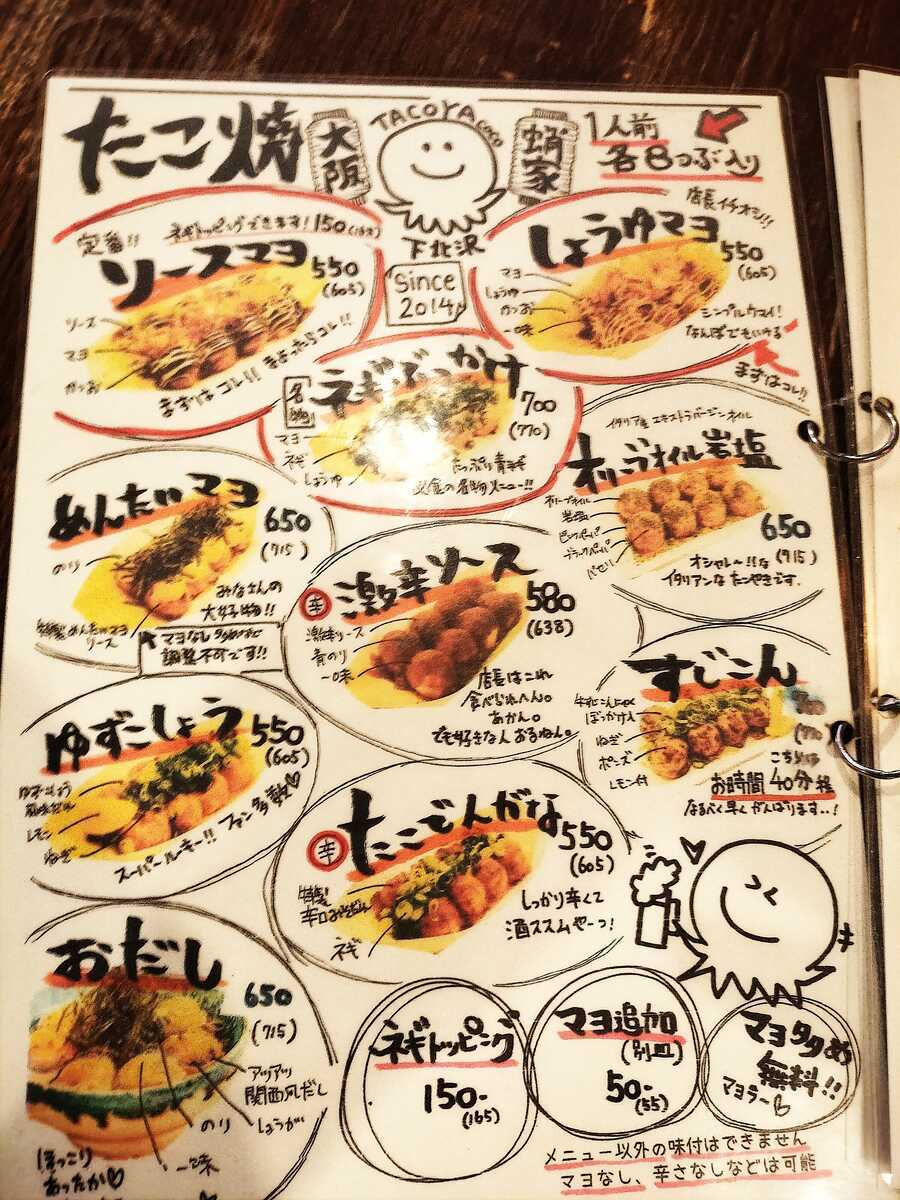 たこ焼
大阪
TACOYA
蛸家
1人前
各8つぶ入り
下北沢
Since
2014
定番!!
ネギトッピングできます!150(165)
ソースマヨ
550
(605)
ソース
マヨ
かつお
まずはコレ!! まよったらコレ!!
店長イチオシ!!
しょうゆマヨ
550
(605)
マヨ
しょうゆ
かつお
一味
シンプルウマイ!
なんぼでもいける
まずはコレ!!
名物
ネギぶっかけ
700
(770)
マヨ
ネギ
しょうゆ
たっぷり青ネギ
必食の名物メニュー!!
イタリア産 エキストラバージンオイル
オリーブオイル岩塩
650
(715)
オリーブオイル
岩塩
ピンクペッパー
ブラックペッパー
パセリ
オシャレ〜!!な
イタリアンなたこやきです。
めんたいマヨ
650
(715)
のり
特製めんたいマヨ
ソース
みなさんの
大好物!!
マヨなし多めなど
調整不可です!!
辛
激辛ソース
580
(638)
激辛ソース
青のり
一味
店長はこれ
食べられへん。
あかん。
でも好きな人おるねん。
すじこん
700
(770)
牛すじこんにゃく
ぼっかけ入
ねぎ
ポンズ
レモン付
こちらは
お時間40分程
なるべく早くがんばります..!
ゆずこしょう
550
(605)
ゆずこしょう
レモン
ねぎ
スーパールーキー!! ファン多数♡
辛
たこでんがな
550
(605)
特製
辛口みそだれ
ネギ
しっかり辛くて
酒ススムやーつ!
おだし
650
(715)
アツアツ
関西風だし
しょうが
のり
一味
ほっこり
あったか♡
ネギトッピング
150-
(165)
マヨ追加
(別皿)
50-
(55)
マヨ多め
無料!!
マヨラー
メニュー以外の味付はできません
マヨなし、辛さなしなどは可能